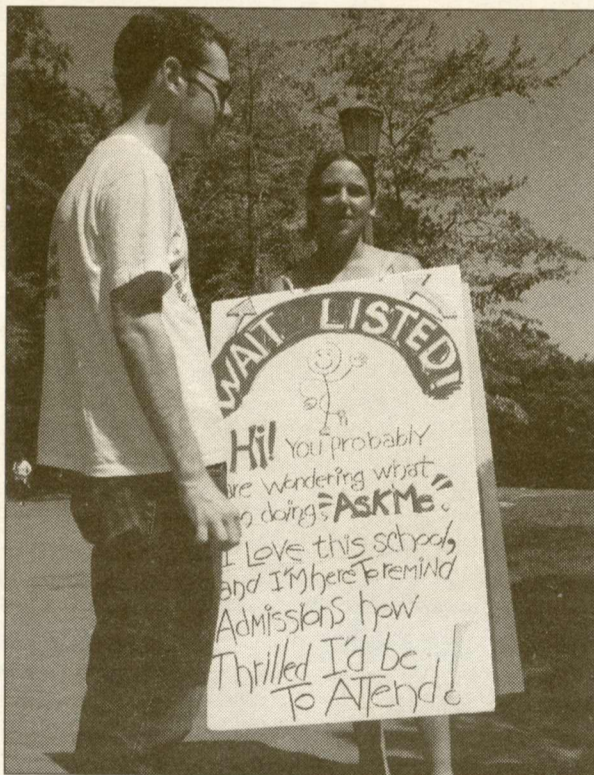 WAIT LISTED!
Hi! You probably
are wondering what
doing? "Ask Me".
I Love this school,
and I'm here To remind
Admissions how
Thrilled I'd be
To Attend!